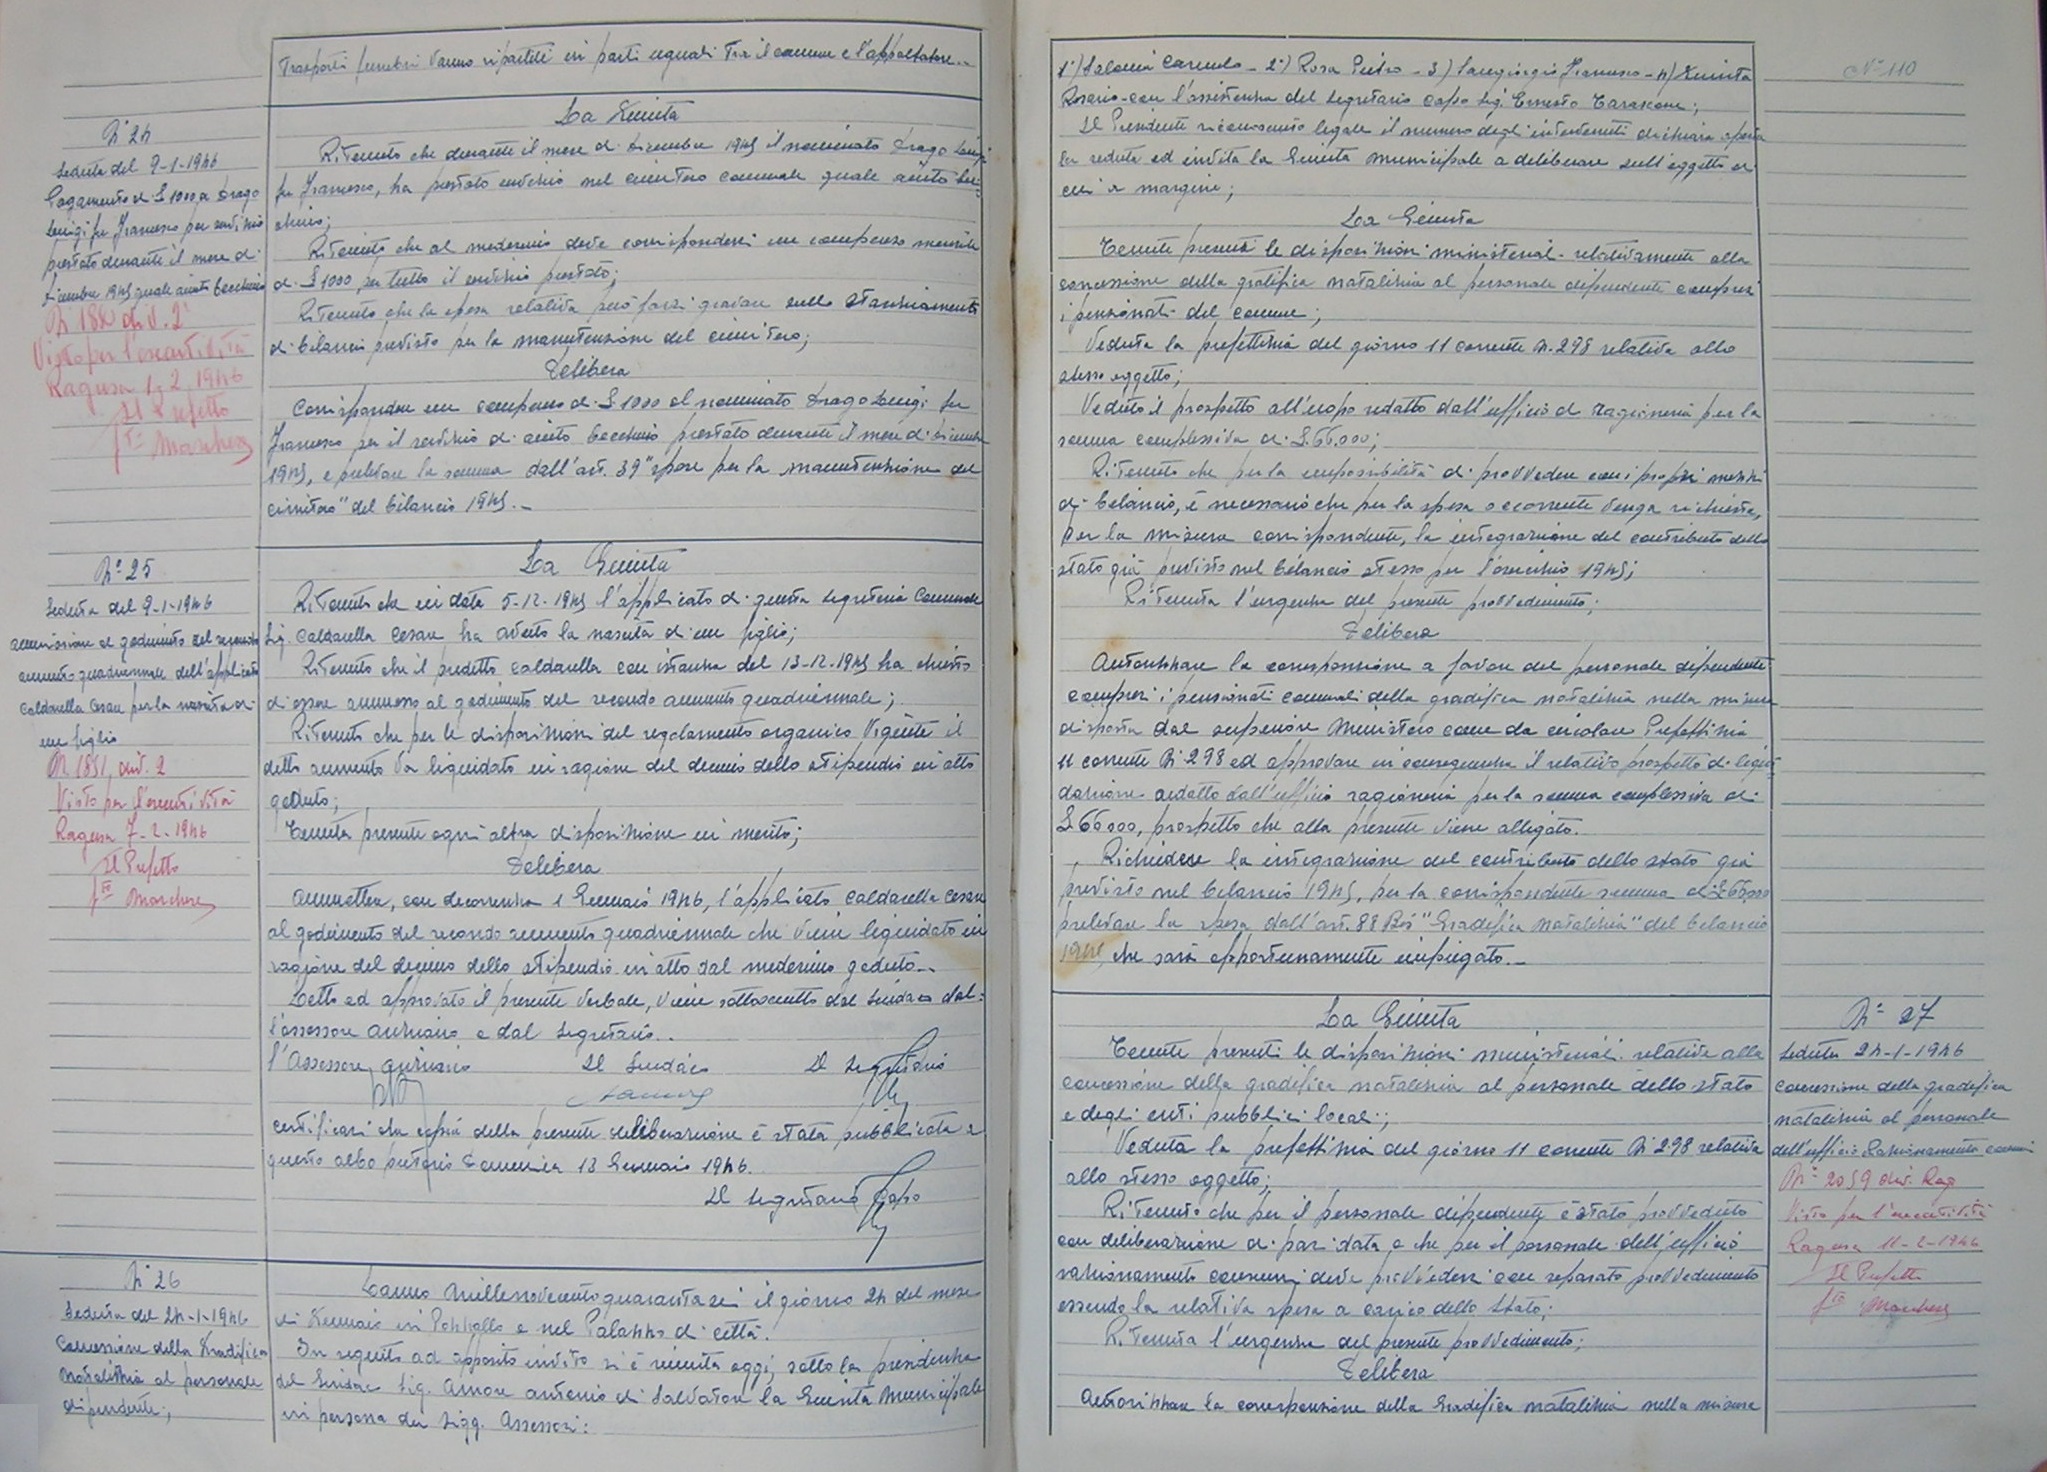 Trasporti funebri vanno ripartiti in parti uguali tra il comune e l'appaltatore..
N. 24
Seduta del 9-1-1946
Pagamento di £ 1000 a Drago
Luigi fu Francesco per servizio
prestato durante il mese di
Dicembre 1945 quale aiuto becchino
N 1850 div. 2ª
Visto per l'esecutività
Ragusa 1.2.1946
Il Prefetto
fto Marchese
La Giunta
Ritenuto che durante il mese di Dicembre 1945 il nominato Drago Luigi
fu Francesco, ha prestato servizio nel cimitero comunale quale aiuto bec-
chino;
Ritenuto che al medesimo deve corrispondersi un compenso mensile
di £ 1000 per tutto il servizio prestato;
Ritenuto che la spesa relativa può farsi gravare sullo stanziamento
di bilancio previsto per la manutenzione del cimitero;
Delibera
Corrispondere un compenso di £ 1000 al nominato Drago Luigi fu
Francesco per il servizio di aiuto becchino prestato durante il mese di Dicembre
1945, e prelevare la somma dall'art. 39 "spese per la manutenzione del
cimitero" del bilancio 1945._
N. 25
Seduta del 9-1-1946
ammissione al godimento del secondo
aumento quadriennale dell'applicato
Caldarella Cesare per la nascita di
un figlio
N 1851 div. 2
Visto per l'esecutività
Ragusa 7-2-1946
Il Prefetto
fto Marchese
La Giunta
Ritenuto che in data 5-12-1945 l'applicato di questa Segreteria Comunale
Sig. Caldarella Cesare ha avuto la nascita di un figlio;
Ritenuto che il predetto Caldarella con istanza del 13-12-1945 ha chiesto
di essere ammesso al godimento del secondo aumento quadriennale;
Ritenuto che per le disposizioni del regolamento organico vigente il
detto aumento va liquidato in ragione del decimo dello stipendio in atto
goduto;
Tenuta presente ogni altra disposizione in merito;
Delibera
Ammettere, con decorrenza 1 Gennaio 1946, l'applicato Caldarella Cesare
al godimento del secondo aumento quadriennale che viene liquidato in
ragione del decimo dello stipendio in atto dal medesimo goduto._
Letto ed approvato il presente verbale, viene sottoscritto dal Sindaco dal-
l'assessore anziano e dal segretario..
l'Assessore anziano Il Sindaco Il Segretario
certificasi che copia della presente deliberazione è stata pubblicata a
questo albo pretorio Domenica 13 Gennaio 1946.
Il Segretario Capo
N. 26
Seduta del 24-1-1946
Concessione della Gradifica
Natalizia al personale
dipendente;
L'anno millenovecentoquarantasei il giorno 24 del mese
di Gennaio in Pozzallo e nel Palazzo di città.
In seguito ad apposito invito si è riunita oggi, sotto la presidenza
del Sindaco Sig. Amore Antonio di Salvatore la Giunta Municipale
in persona dei Sigg. Assessori:
N° 110
1°) Salonia Carmelo - 2°) Rosa Pietro - 3) Sangiorgio Francesco - 4)
Rosario - con l'assistenza del Segretario Capo Sig. Ernesto Tarascone;
Il Presidente riconosciuto legale il numero degli intervenuti dichiara aperta
la seduta ed invita la Giunta Municipale a deliberare sull'oggetto di
cui a margine;
La Giunta
Tenute presenti le disposizioni ministeriali relativamente alla
concessione della gratifica natalizia al personale dipendente compresi
i pensionati del comune;
Veduta la prefettizia del giorno 11 corrente N. 298 relativa allo
stesso oggetto;
Veduto il prospetto all'uopo redatto dall'ufficio di ragioneria per la
somma complessiva di £.66.000;
Ritenuto che per la impossibilità di provvedere con i propri mezzi
di bilancio, è necessario che per la spesa occorrente venga richiesta,
per la misura corrispondente, la integrazione del contributo dello
stato già previsto nel bilancio stesso per l'esercizio 1945;
Ritenuta l'urgenza del presente provvedimento;
Delibera
Autorizzare la corresponsione a favore del personale dipendente
compresi i pensionati comunali della gradifica natalizia nella misura
disposta dal superiore Ministero come da circolare Prefettizia
11 corrente N. 298 ed approvare in conseguenza il relativo prospetto di liqui-
dazione redatto dall'ufficio ragioneria per la somma complessiva di
£ 66000, prospetto che alla presente viene allegato.
Richiedere la integrazione del contributo dello stato già
previsto nel bilancio 1945, per la corrispondente somma di £ 66000
prelevare la spesa dall'art. 88 Bis "Gradifica Natalizia" del bilancio
1945, che sarà opportunamente impinguato._
N. 27
Seduta 24-1-1946
Concessione della gradifica
natalizia al personale
dell'ufficio Razionamento consumi
N° 2059 div. Rag
Visto per l'esecutività
Ragusa 11-2-1946
Il Prefetto
fto Marchese
La Giunta
Tenute presenti le disposizioni ministeriali relative alla
concessione della gradifica natalizia al personale dello stato
e degli enti pubblici locali;
Veduta la prefettizia del giorno 11 corrente N 298 relativa
allo stesso oggetto;
Ritenuto che per il personale dipendente è stato provveduto
con deliberazione di pari data e che per il personale dell'ufficio
razionamento consumi deve provvedersi con separato provvedimento
essendo la relativa spesa a carico dello Stato;
Ritenuta l'urgenza del presente provvedimento;
Delibera
Autorizzare la corresponsione della Gradifica natalizia nella misura